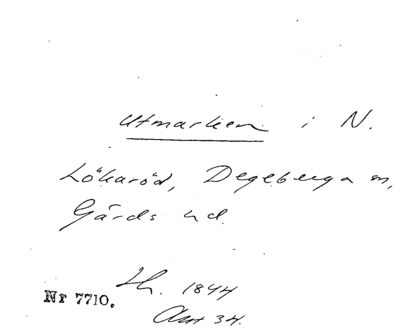 Utmarken i N.
Lökaröd, Degeberga sn,
Gärds hd.
Lh. 1844
Nr 7710.
Akt 34.